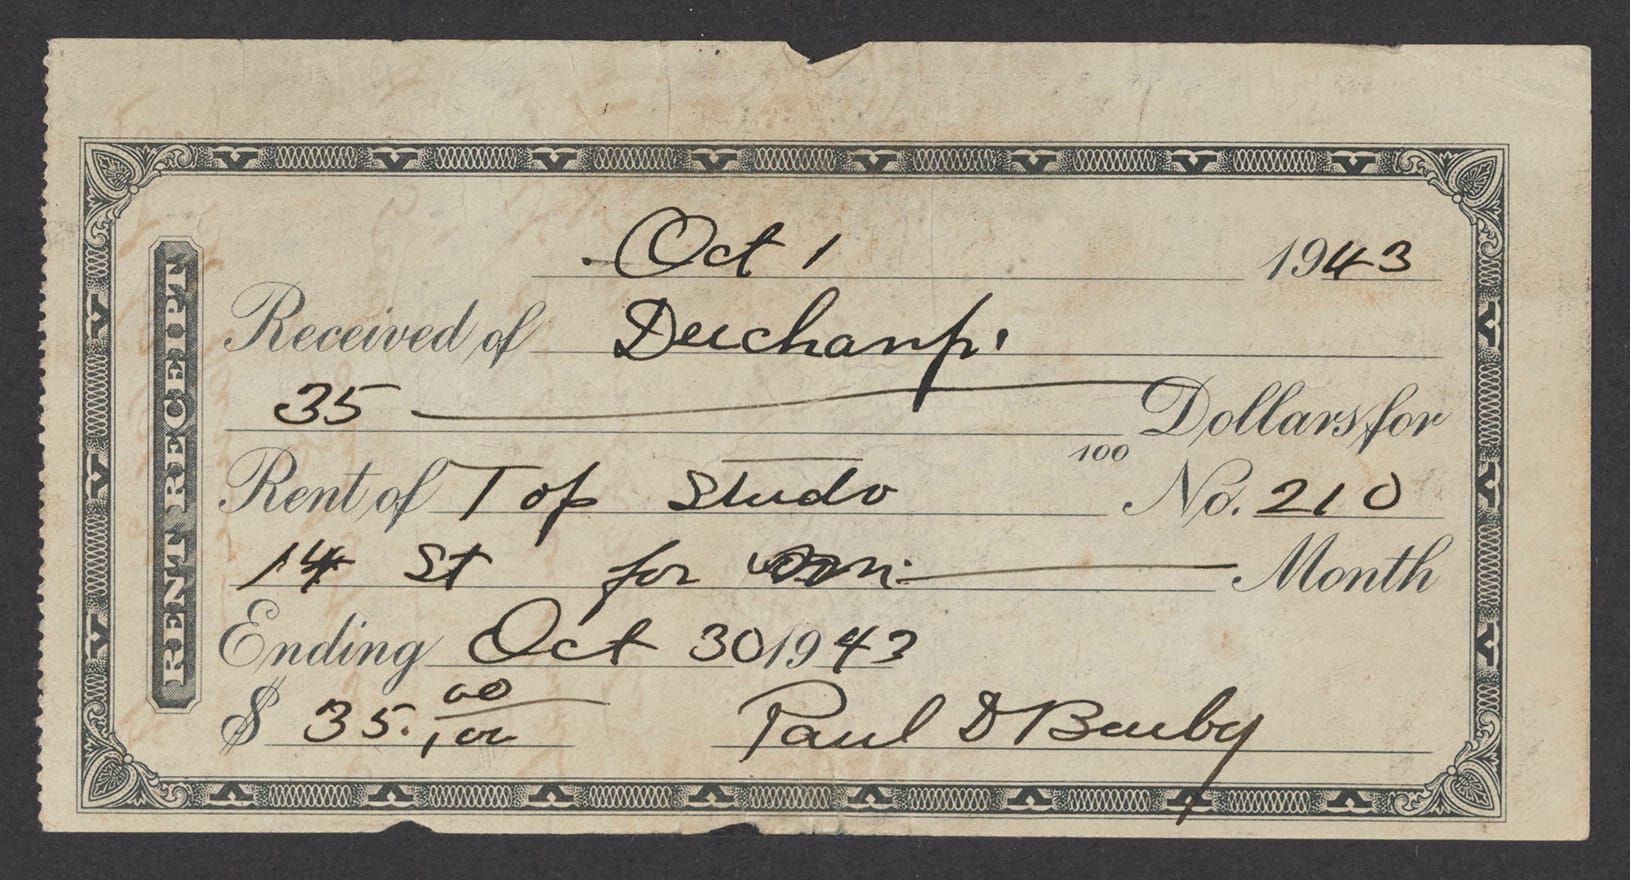 RENT RECEIPT
Oct 1 1943
Received of Duchamp.
35 Dollars for
100
Rent of Top Studo No. 210
14 St for Month
Ending Oct 30 1943
$ 35.00/100 Paul D